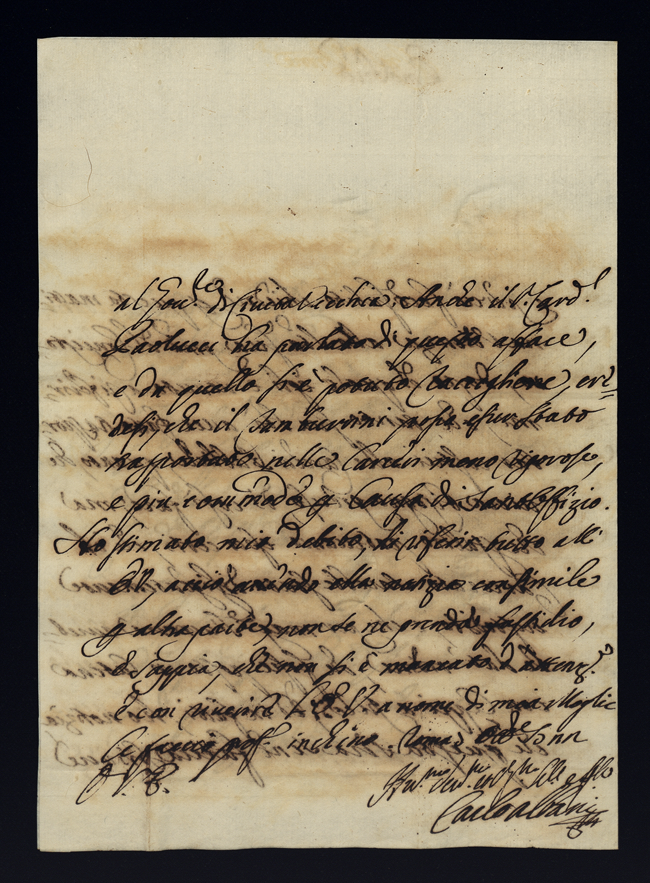 al Gov.re di Civita Vecchia. Anche il S. Card.l
Paolucci ha parlato di questo affare,
e da quello si è potuto raccogliere, cre=
desi, che il Tamburini possa esser stato
trasportato nelle Carceri meno rigorose,
e più commode p Causa di Sant'Offizio.
Ho stimato mio debito, di riferir tutto all
E.V., acciò avendo ella notizia consimile
p altra parte, non se ne prenda fastidio,
e sappia, che non si è mancato d'attenz.e
E con riverire l'E.V. a nome di mia Moglie
Le faccio inchino Roma
V. E.
Carlo Albani